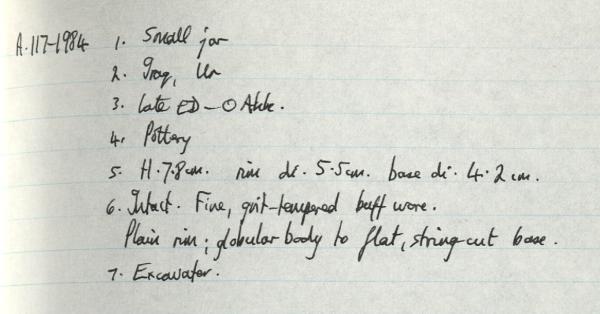 A.117-1984 1. Small jar
2. Iraq, Ur
3. Late ED - Akk.
4. Pottery
5. H. 7.8cm. rim di. 5.5cm. base di. 4.2cm.
6. Intact. Fine, grit-tempered buff ware.
Plain rim; globular body to flat, string-cut base.
7. Excavator.